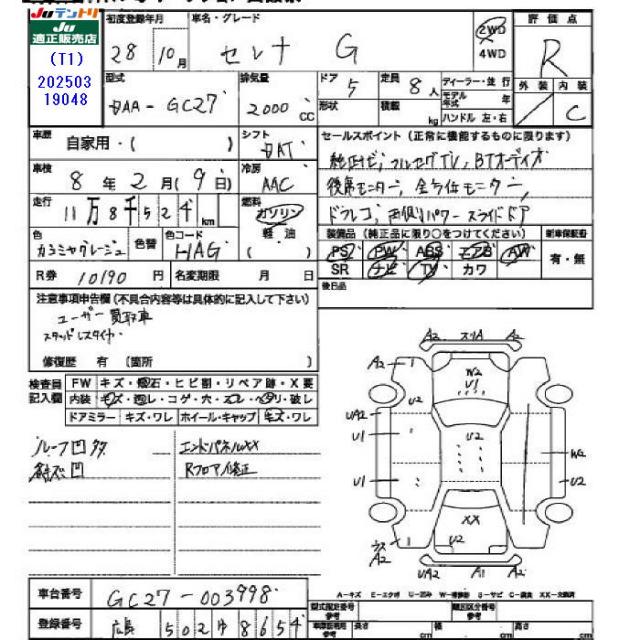 Juテントリ
Ju
適正販売店
(T1)
202503
19048
初度登録年月
車名・グレード
28 10月
セレナ G
2WD
4WD
評価点
R
外装 内装
/ C
型式
DAA-GC27
排気量
2000 CC
ドア
5
形状
定員
8人
積載
kg
ディーラー・並行
モデル年式 年
ハンドル 左・右
車歴
自家用・( )
シフト
DAT
車検
8年2月(9日)
冷房
AAC
走行
11万8千524km
燃料
ガソリン
軽油
( )
色
カシミヤグレージュ
色替
色コード
HAG
R券 10190円
名変期限 月 日
セールスポイント(正常に機能するものに限ります)
純正ナビ、フルセグTV、BTオーディオ
後席モニター、全方位モニター
ドラレコ、両側パワースライドドア
装備品(純正品に限り○をつけてください)
新車保証書
PS PW ABS エアB AW
SR ナビ TV カワ
有・無
後日品
注意事項申告欄(不具合内容等は具体的に記入して下さい)
ユーザー買取車
スタッドレスタイヤ
修復歴 有(箇所 )
検査員
記入欄
FW キズ・飛石・ヒビ割・リペア跡・X要
内装 キズ・汚レ・コゲ・穴・スレ・ヘタリ・破レ
ドアミラー キズ・ワレ ホイール・キャップ キズ・ワレ
ルーフ凹 タタ
各キズ凹
エンドパネルXX
Rフロア修正
A2 スリA A2
A2 I W2 U1 A2
U2
UA2
U2
U1
U1
W2
U2
XX
U2
A2 I A2
UA2 A1 A2
車台番号 GC27-003998
登録番号 広島 502 ゆ 8654
A-キズ E-エクボ U-凹み W-補修跡 S-サビ C-腐食 XX-交換済
型式指定番号
参考
類別区分番号
参考
車庫証明用
参考
長さ cm 幅 cm 高さ cm